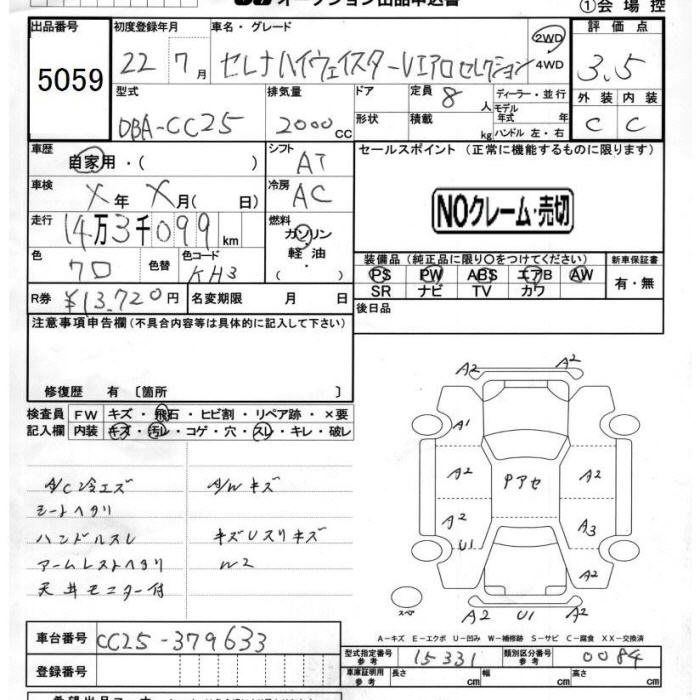 オークション出品申込書
①会場控
出品番号 初度登録年月 車名・グレード 評価点
5059 22年 7月 セレナハイウェイスターVエアロセレクション 2WD 4WD 3.5
型式 排気量 ドア 定員 8人 ディーラー・並行 外装 内装
DBA-CC25 2000cc 形状 積載 kg モデル年式 年 ハンドル 左・右 C C
車歴 自家用・( ) シフト AT セールスポイント (正常に機能するものに限ります)
車検 X年 X月( 日) 冷房 AC NOクレーム・売切
走行 14万3千099km 燃料 ガソリン・軽油・( )
色 クロ 色替 色コード KH3
装備品 (純正品に限り○をつけてください) 新車保証書
PS PW ABS エアB AW 有・無
SR ナビ TV カワ
R券 ¥13,720円 名変期限 月 日 後日品
注意事項申告欄(不具合内容等は具体的に記入して下さい)
修復歴 有 〔箇所 〕
検査員記入欄 FW キズ・飛石・ヒビ割・リペア跡・×要
内装 キズ・汚レ・コゲ・穴・スレ・キレ・破レ
A/C冷エズ A/Wキズ
シートヘタリ
ハンドルスレ キズUスリキズ
アームレストヘタリ W2
天井モニター付
A2 A2
A1
A2 Pアセ A2
A2 A3
U1
A2
スペア A2 U1 A2
A-キズ E-エクボ U-凹み W-補修跡 S-サビ C-腐食 XX-交換済
車台番号 CC25-379633
型式指定番号 参考 15331 類別区分番号 参考 0084
登録番号 車庫証明用 参考 長さ cm 幅 cm 高さ cm